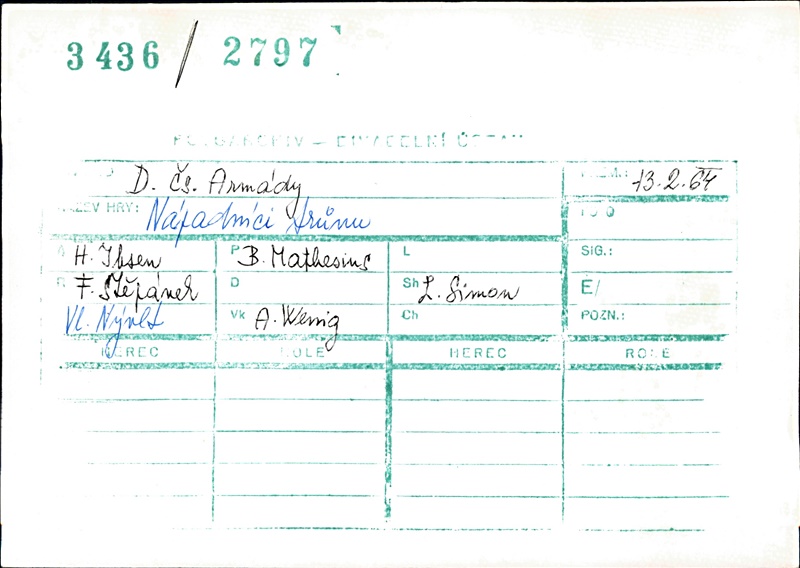 3436 / 2797
FOTOARCHIV – DIVADELNÍ ÚSTAV
D. Čs. Armády
PREM.: 13.2.64
NÁZEV HRY: Nápadníci trůnu
FOTO
A H. Ibsen P B. Mathesius L SIG.:
R F. Štěpánek D Sh L. Simon Č/
Vl. Nývlt Vk A. Wenig Ch POZN.:
HEREC ROLE HEREC ROLE